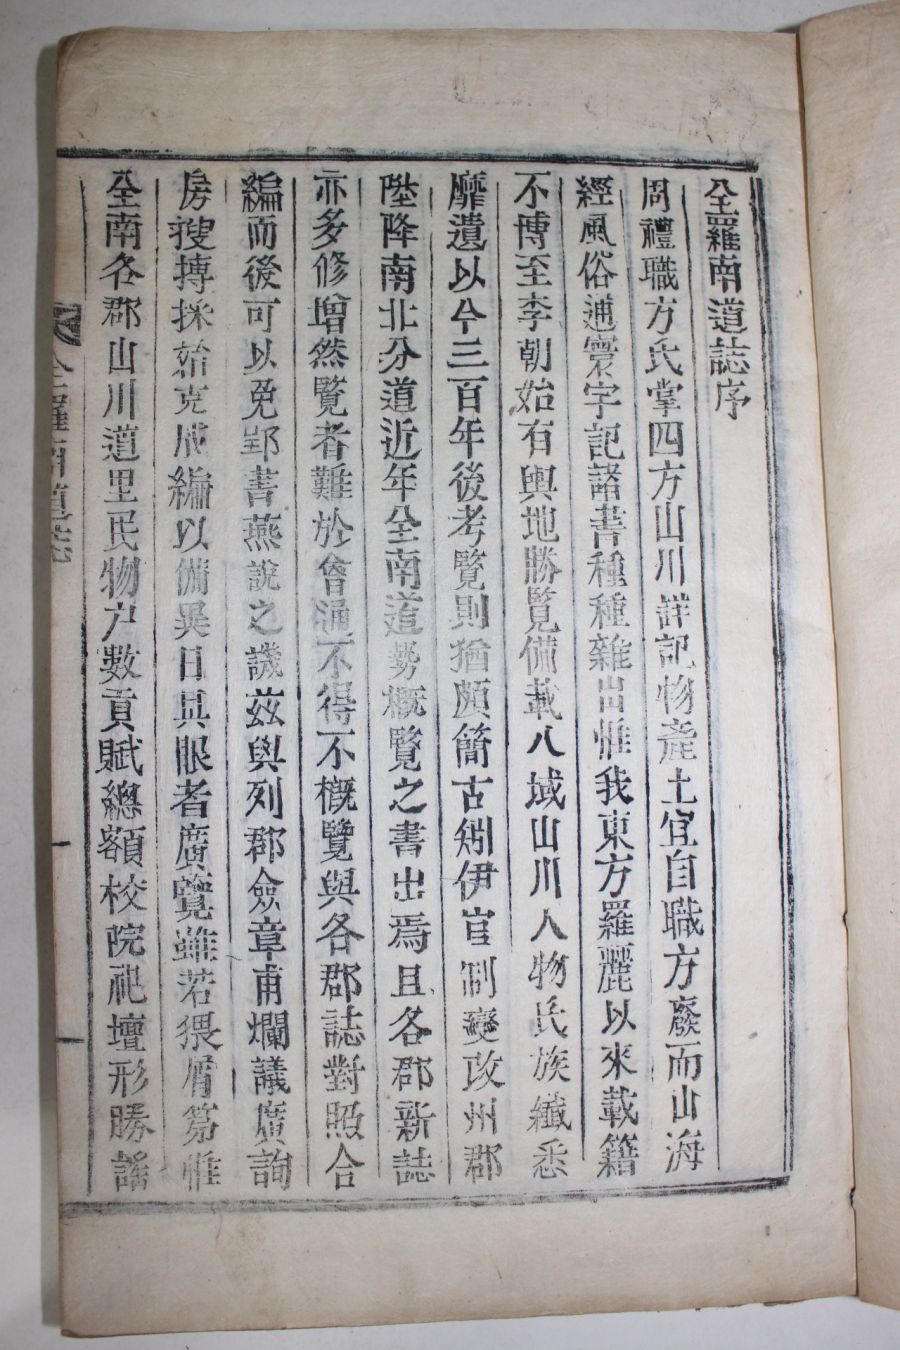 全羅南道誌序
周禮職方氏掌四方山川詳記物產土宜自職方廢而山海
經風俗通寰宇記諸書種種雜出惟我東方羅麗以來載籍
不博至李朝始有輿地勝覽備載八域山川人物氏族纖悉
靡遺以今三百年後考覽則猶頗簡古矧伊官制變改州郡
陞降南北分道近年全南道勢概覽之書出焉且各郡新誌
亦多修增然覽者難於會通不得不概覽與各郡誌對照合
編而後可以免郢書燕說之譏茲與列郡僉章甫爛議廣詢
房搜摶採始克成編以備異日具眼者廣覽雖若猥屑笏惟
全南各郡山川道里民物户數貢賦總額校院祀壇形勝謠
全羅南道誌